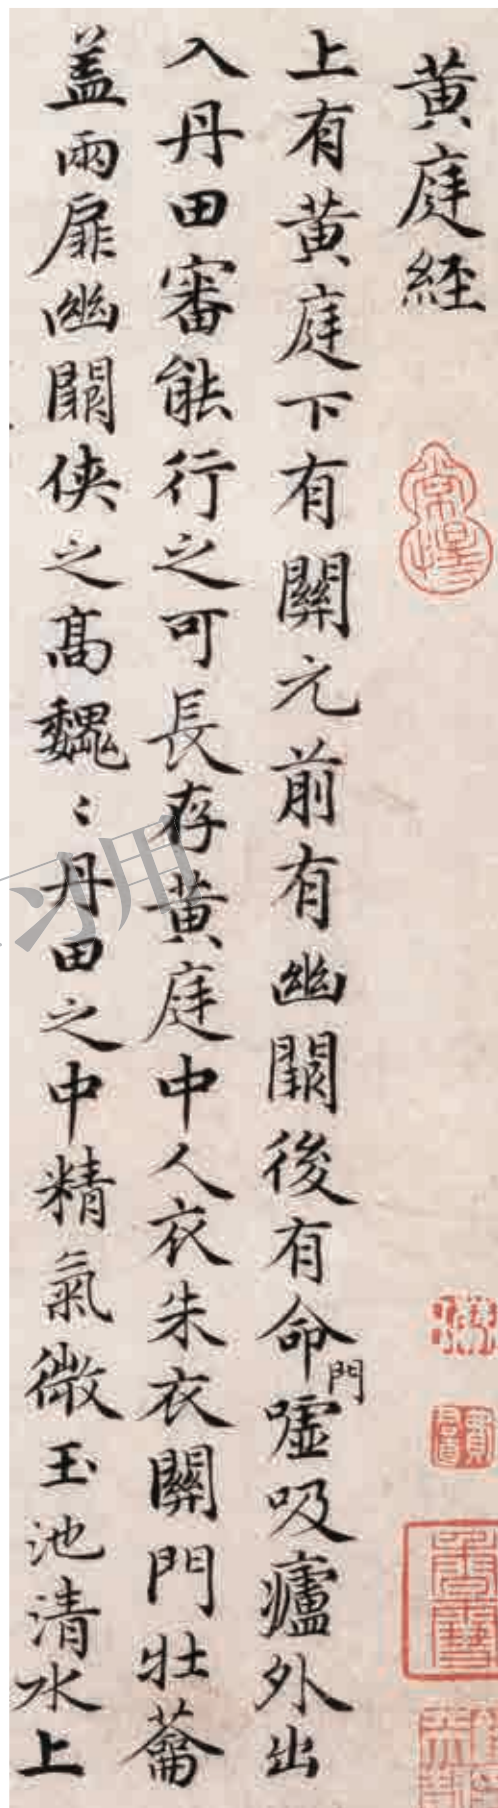 黄庭経
上有黄庭下有關元前有幽闕後有命門嘘吸廬外出
入丹田審能行之可長存黄庭中人衣朱衣關門壯蘥
盖兩扉幽闕侠之高魏:丹田之中精氣微玉池清水上